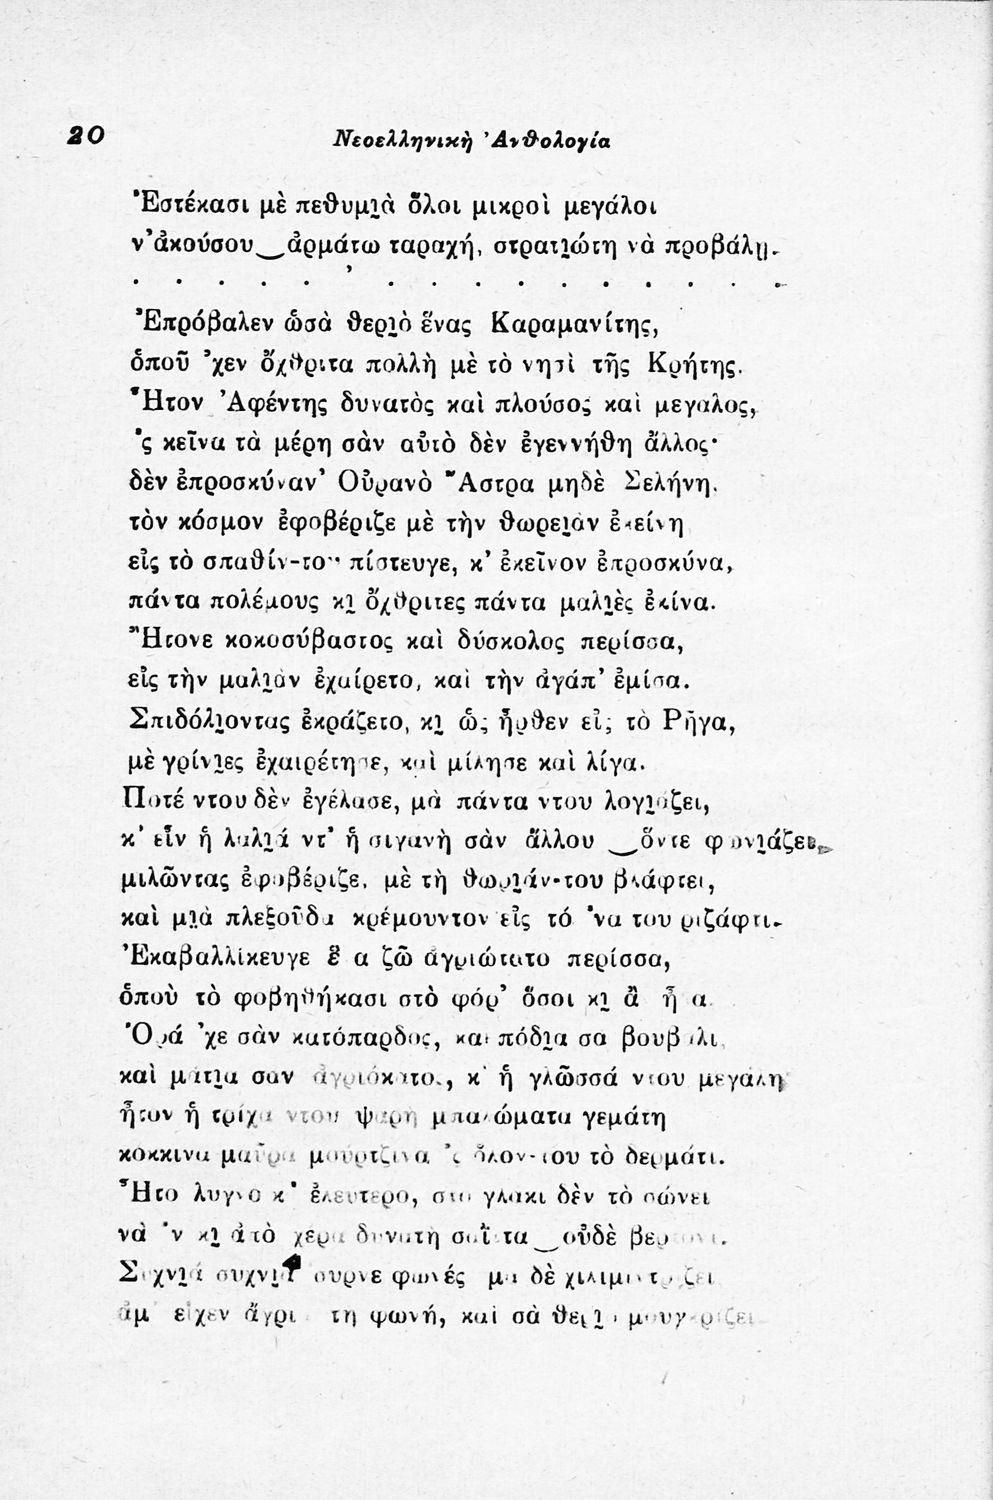 20
Νεοελληνικὴ Ἀνθολογία
Ἐστέκασι μὲ πεθυμιὰ ὅλοι μικροὶ μεγάλοι
ν’ ἀκούσου‿ἀρμάτω ταραχή, στρατιώτη νὰ προβάλῃ.
. . . . . . . . . . . . . . . .
Ἐπρόβαλεν ὡσὰ θεριὸ ἕνας Καραμανίτης,
ὁποῦ ’χεν ὄχθριτα πολλὴ μὲ τὸ νησὶ τῆς Κρήτης.
Ἤτον Ἀφέντης δυνατὸς καὶ πλούσος καὶ μεγάλος,
’ς κεῖνα τὰ μέρη σὰν αὐτὸ δὲν ἐγεννήθη ἄλλος·
δὲν ἐπροσκύναν’ Οὐρανὸ Ἄστρα μηδὲ Σελήνη,
τὸν κόσμον ἐφοβέριζε μὲ τὴν θωρειὰν ἐκείνη
εἰς τὸ σπαθίν-του πίστευγε, κ’ ἐκεῖνον ἐπροσκύνα,
πάντα πολέμους κι ὄχθριτες πάντα μαλιὲς ἐκίνα.
Ἤτονε κοκοσύβαστος καὶ δύσκολος περίσσα,
εἰς τὴν μαλιὰν ἐχαίρετο, καὶ τὴν ἀγάπ’ ἐμίσα.
Σπιδόλιοντας ἐκράζετο, κι ὡς ἦρθεν εἰς τὸ Ρῆγα,
μὲ γρίνιες ἐχαιρέτησε, καὶ μίλησε καὶ λίγα.
Ποτέ ντου δὲν ἐγέλασε, μὰ πάντα ντου λογιάζει,
κ’ εἶν ἡ λαλιά ντ’ ἡ σιγανὴ σὰν ἄλλου ‿ὅντε φωνιάζει,
μιλῶντας ἐφοβέριζε, μὲ τὴ θωριάν-του βλάφτει,
καὶ μιὰ πλεξοῦδα κρέμουντον εἰς τό ’να του ριζάφτι.
Ἐκαβαλλίκευγε ἕ α ζῶ ἀγριώτατο περίσσα,
ὁποὺ τὸ φοβηθήκασι στὸ φόρ’ ὅσοι κι ἂ ἦ α.
Ὀρά ’χε σὰν κατόπαρδος, καὶ πόδια σα βουβάλι,
καὶ μάτια σαν ἀγριόκατος, κ’ ἡ γλῶσσά ντου μεγάλη
ἦτον ἡ τρίχα ντου ψαρὴ μπαλώματα γεμάτη
κόκκινα μαῦρα μούρτζινα ’ς ὅλον-του τὸ δερμάτι.
Ἦτο λυγνὸ κ’ ἐλεύτερο, στὸ γλάκι δὲν τὸ σώνει
νὰ ’ν κι ἀπὸ χέρα δυνατὴ σαΐττα ‿οὐδὲ
Συχνιά συχνιὰ ἤσυρνε φωνές μα δὲ
ἀμ’ εἶχεν ἄγρι τη φωνή, καὶ σὰ θεριὸ μουγκρίζει